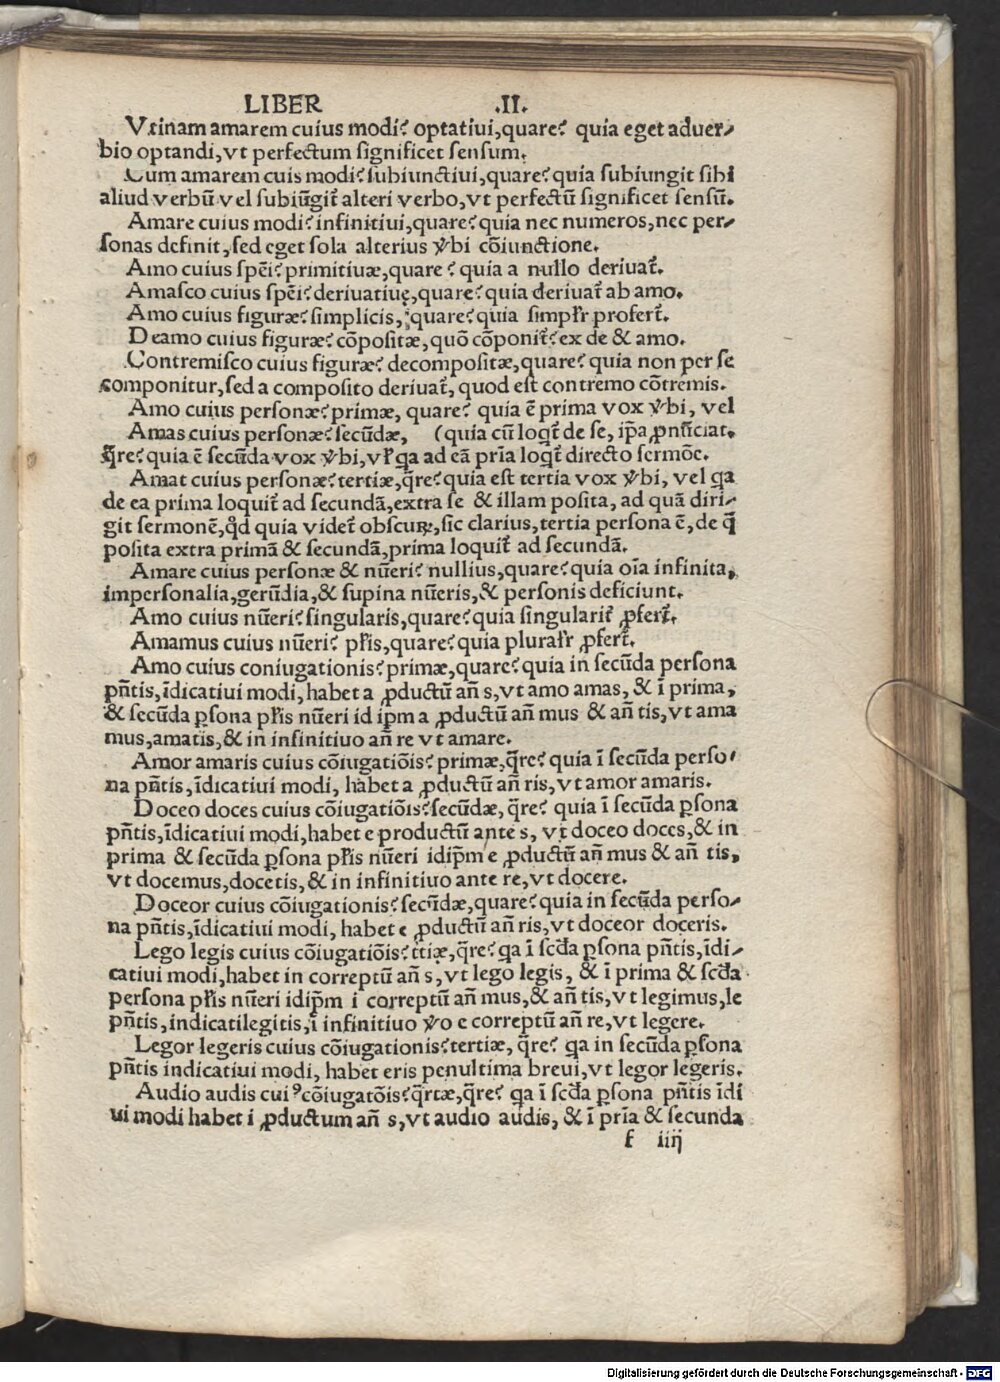 LIBER .II.
Vtinam amarem cuius modi? optatiui, quare? quia eget aduer-
bio optandi, vt perfectum significet sensum.
Cum amarem cuis modi? subiunctiui, quare? quia subiungit sibi
aliud verbū vel subiūgit̄ alteri verbo, vt perfectū significet sensū.
Amare cuius modi? infinitiui, quare? quia nec numeros, nec per-
sonas definit, sed eget sola alterius v̓bi cōiunctione.
Amo cuius spēi? primitiuæ, quare? quia a nullo deriuat̄.
Amasco cuius spēi? deriuatiuę, quare? quia deriuat̄ ab amo.
Amo cuius figuræ? simplicis, quare? quia simpl̄r profert̄.
Deamo cuius figuræ? cōpositæ, quō cōponit̄? ex de & amo.
Contremisco cuius figuræ? decompositæ, quare? quia non per se
componitur, sed a composito deriuat̄, quod est contremo cōtremis.
Amo cuius personæ? primæ, quare? quia ē prima vox v̓bi, vel
Amas cuius personæ? secūdæ, (quia cū loqt̄ de se, ip̄a ꝓnūciat.
q̄re? quia ē secūda vox v̓bi, vl̄ qa ad eā pr̄ia loqt̄ directo sermōe.
Amat cuius personæ? tertiæ, q̄re? quia est tertia vox v̓bi, vel qa
de ea prima loquit̄ ad secundā, extra se & illam posita, ad quā diri-
git sermonē, qd̓ quia videt̄ obscuꝝ, sic clarius, tertia persona ē, de q̄
posita extra primā & secundā, prima loquit̄ ad secundā.
Amare cuius personæ & nūeri? nullius, quare? quia oīa infinita,
impersonalia, gerūdia, & supina nūeris, & personis deficiunt.
Amo cuius nūeri? singularis, quare? quia singularit̄ ꝓfert̄.
Amamus cuius nūeri? pl̄is, quare? quia plural̄r ꝓfert̄.
Amo cuius coniugationis? primæ, quare? quia in secūda persona
pn̄tis, īdicatiui modi, habet a ꝓductū an̄ s, vt amo amas, & ī prima,
& secūda ꝑsona pl̄is nūeri id ip̄m a ꝓductū an̄ mus & an̄ tis, vt ama
mus, amatis, & in infinitiuo an̄ re vt amare.
Amor amaris cuius cōiugatiōis? primæ, q̄re? quia ī secūda perso-
na pn̄tis, īdicatiui modi, habet a ꝓductū an̄ ris, vt amor amaris.
Doceo doces cuius cōiugatiōis? secūdæ, q̄re? quia ī secūda ꝑsona
pn̄tis, īdicatiui modi, habet e productū ante s, vt doceo doces, & in
prima & secūda ꝑsona pl̄is nūeri idip̄m e ꝓductū an̄ mus & an̄ tis,
vt docemus, docetis, & in infinitiuo ante re, vt docere.
Doceor cuius cōiugationis? secūdæ, quare? quia in secūda perso-
na pn̄tis, īdicatiui modi, habet e ꝓductū an̄ ris, vt doceor doceris.
Lego legis cuius cōiugatiōis? t̄tiæ, q̄re? qa ī scd̄a ꝑsona pn̄tis, īdi-
catiui modi, habet in correptū an̄ s, vt lego legis, & ī prima & scd̄a
persona pl̄is nūeri idip̄m i correptū an̄ mus, & an̄ tis, vt legimus, le
pn̄tis, indicatilegitis, ī infinitiuo v̓o e correptū an̄ re, vt legere.
Legor legeris cuius cōiugationis? tertiæ, q̄re? qa in secūda ꝑsona
pn̄tis indicatiui modi, habet eris penultima breui, vt legor legeris.
Audio audis cuiꝰ cōiugatōis? q̄rtæ, q̄re? qa ī scd̄a ꝑsona pn̄tis īdi
ui modi habet i ꝓductum an̄ s, vt audio audis, & ī pr̄ia & secunda
f iiij
Digitalisierung gefördert durch die Deutsche Forschungsgemeinschaft - DFG